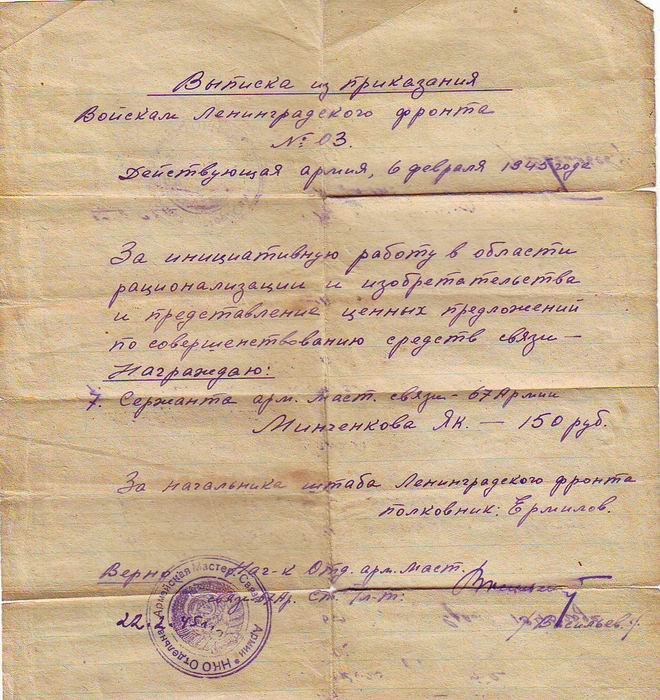 Выписка из приказания
Войскам Ленинградского фронта
№ 03.
Действующая армия, 6 февраля 1945 года
За инициативную работу в области
рационализации и изобретательства
и представление ценных предложений
по совершенствованию средств связи —
Награждаю:
7. Сержанта арм. маст. связи - 67 Армии
Минченкова Як. — 150 руб.
За начальника штаба Ленинградского фронта
полковник: Ермилов.
Верно: Нач-к Отд. арм. маст.
Ст. л-т:
22.2.45
/Васильев/
Отдельная Армейская Мастер. Связи Армии • НКО